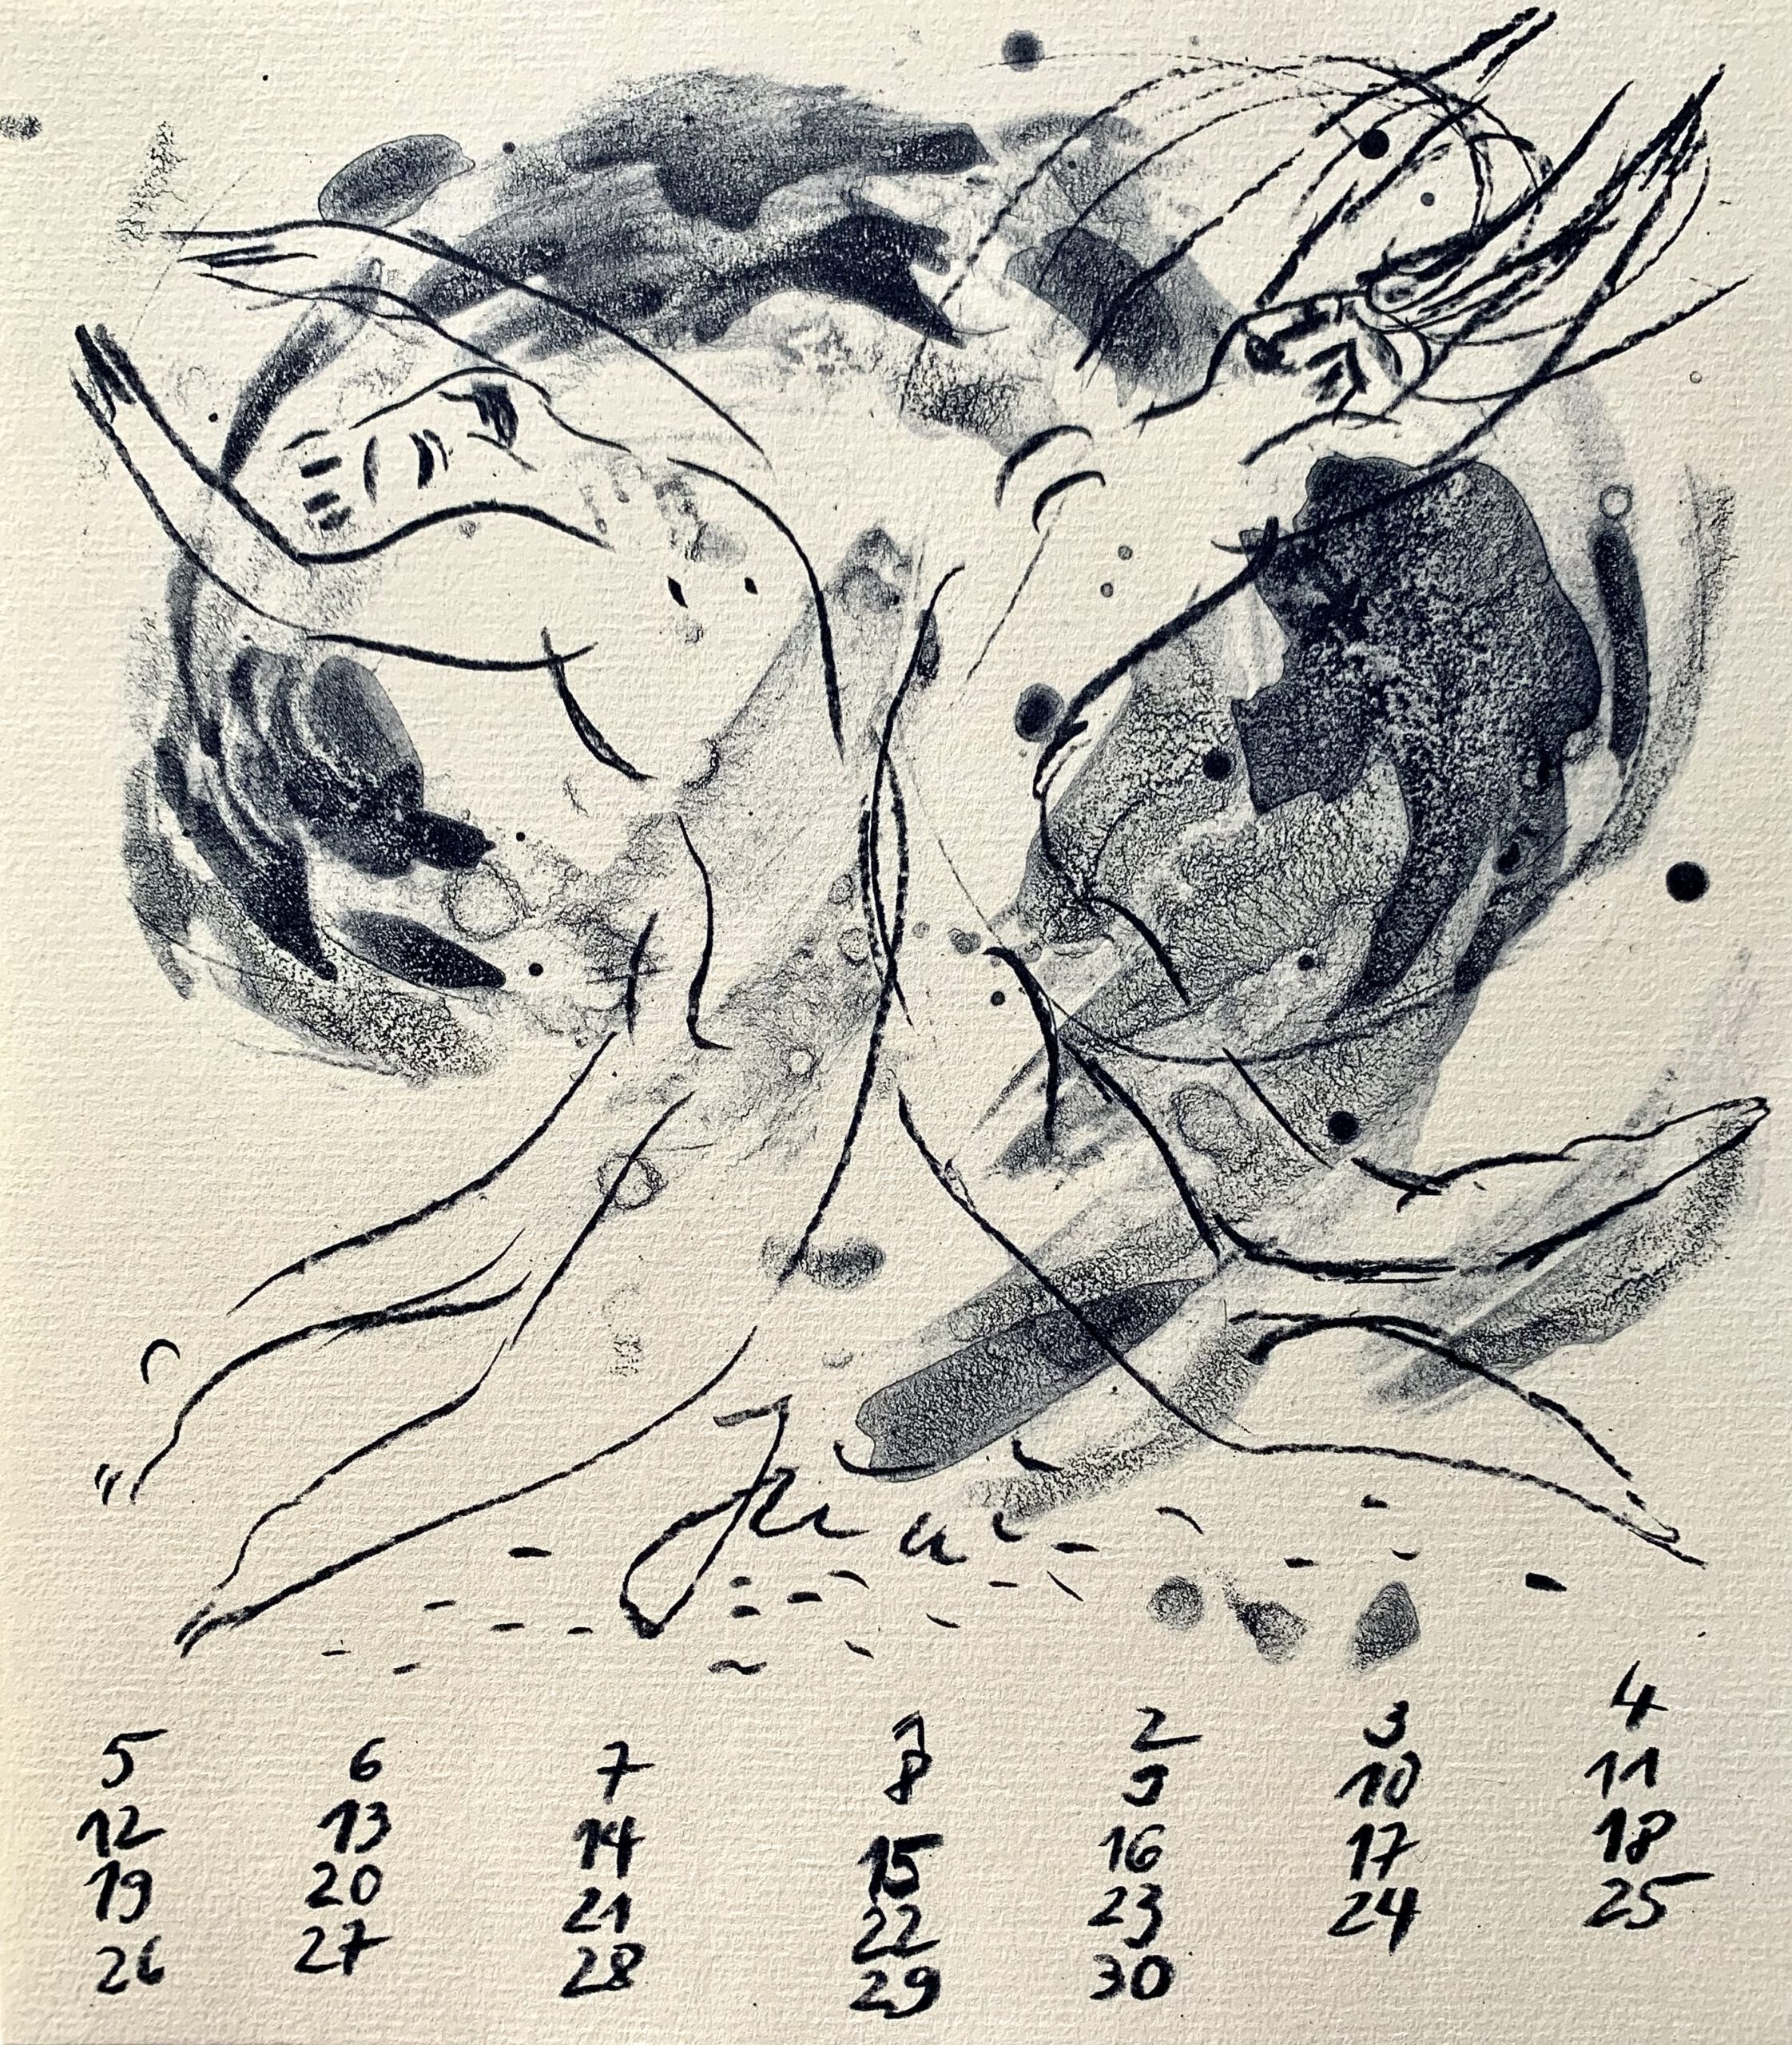 Juni
1 2 3 4
5 6 7 8 9 10 11
12 13 14 15 16 17 18
19 20 21 22 23 24 25
26 27 28 29 30